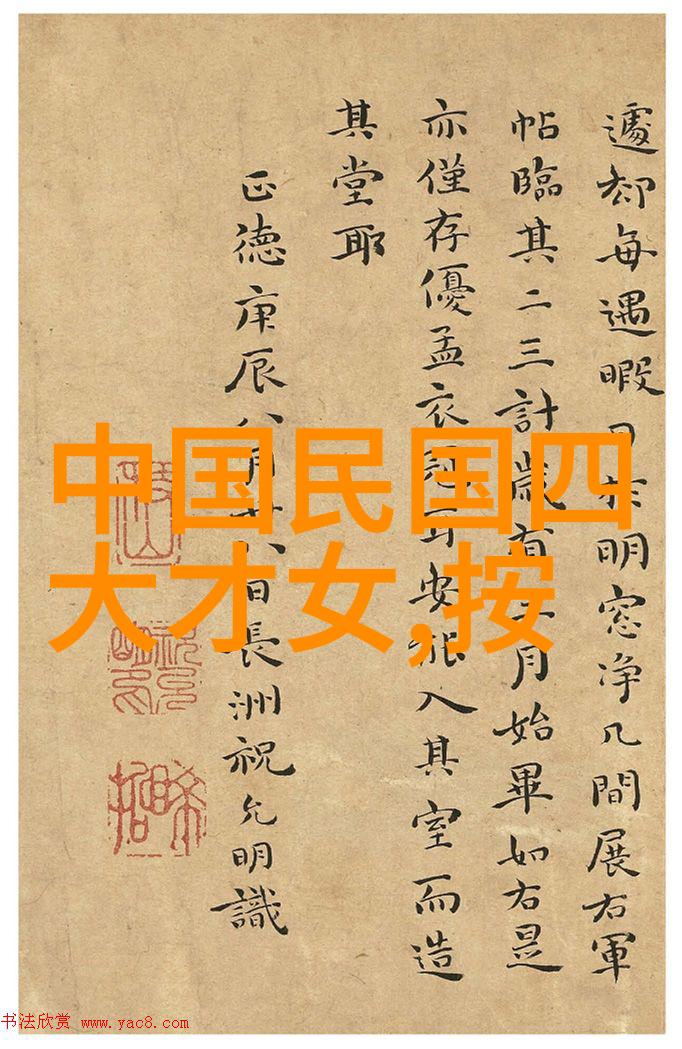 遽却每遇暇日於明窓净几間展右軍
帖臨其二三計歲有月始畢如右是
亦僅存優孟衣冠耳安能入其室而造
其堂耶
正德庚辰八月廿八日長洲祝允明識
中国民国四
大才女,按
书法欣赏 www.yac8.com